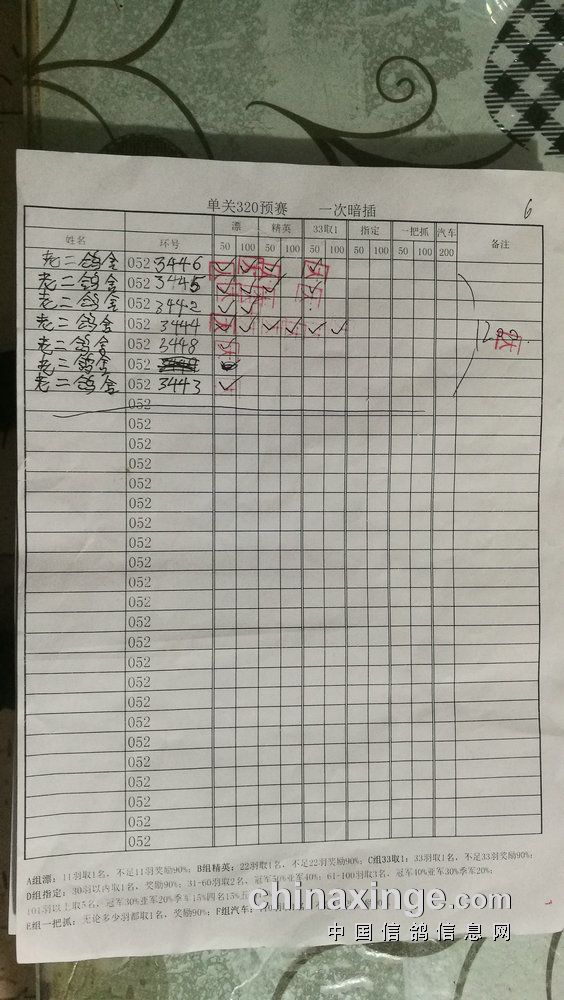 6
单关320预赛 一次暗插
姓名 环号 漂 精英 33取1 指定 一把抓 汽车 备注
50 100 50 100 50 100 50 100 50 100 200
老二鸽舍 052 3446
老二鸽舍 052 3445
老二鸽舍 052 3442
老二鸽舍 052 3444
老二鸽舍 052 3448
老二鸽舍 052
老二鸽舍 052 3443
052
052
052
052
052
052
052
052
052
052
052
052
052
052
052
052
052
052
052
052
052
052
052
A组漂：11羽取1名，不足11羽奖励90%；B组精英：22羽取1名，不足22羽奖励90%；C组33取1：33羽取1名，不足33羽奖励90%；
D组指定：30羽以内取1名，奖励90%；31-60羽取2名，冠军50%亚军40%；61-100羽取3名，冠军40%亚军30%季军20%；
101羽以上取5名，冠军30%亚军20%季军15%四名15%五
E组一把抓：无论多少羽都取1名，奖励90%；F组汽车：
chinaxinge.com
中国信鸽信息网